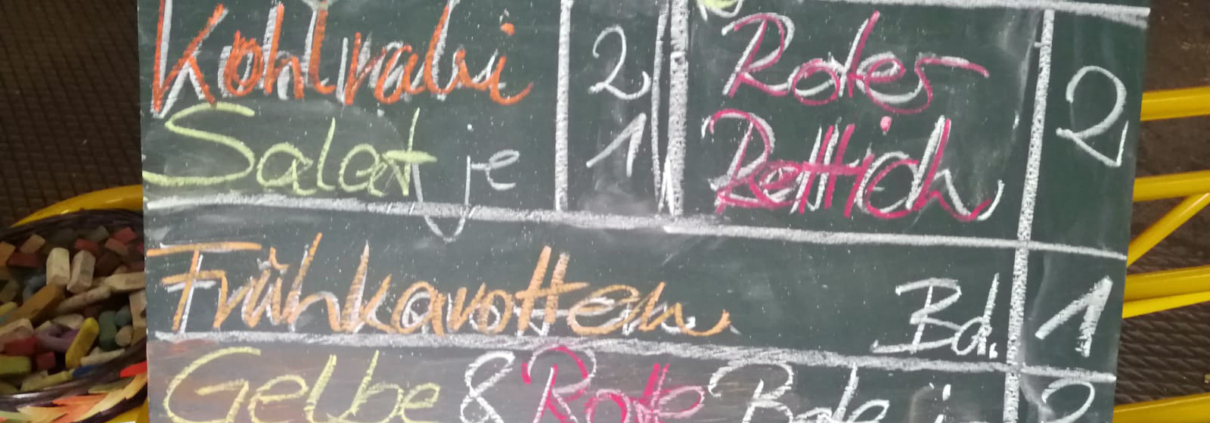 Kohlrabi 2
Salat je 1
Roter 2
Rettich
Frühkarotten Bd. 1
Gelbe & Rote Bete 2